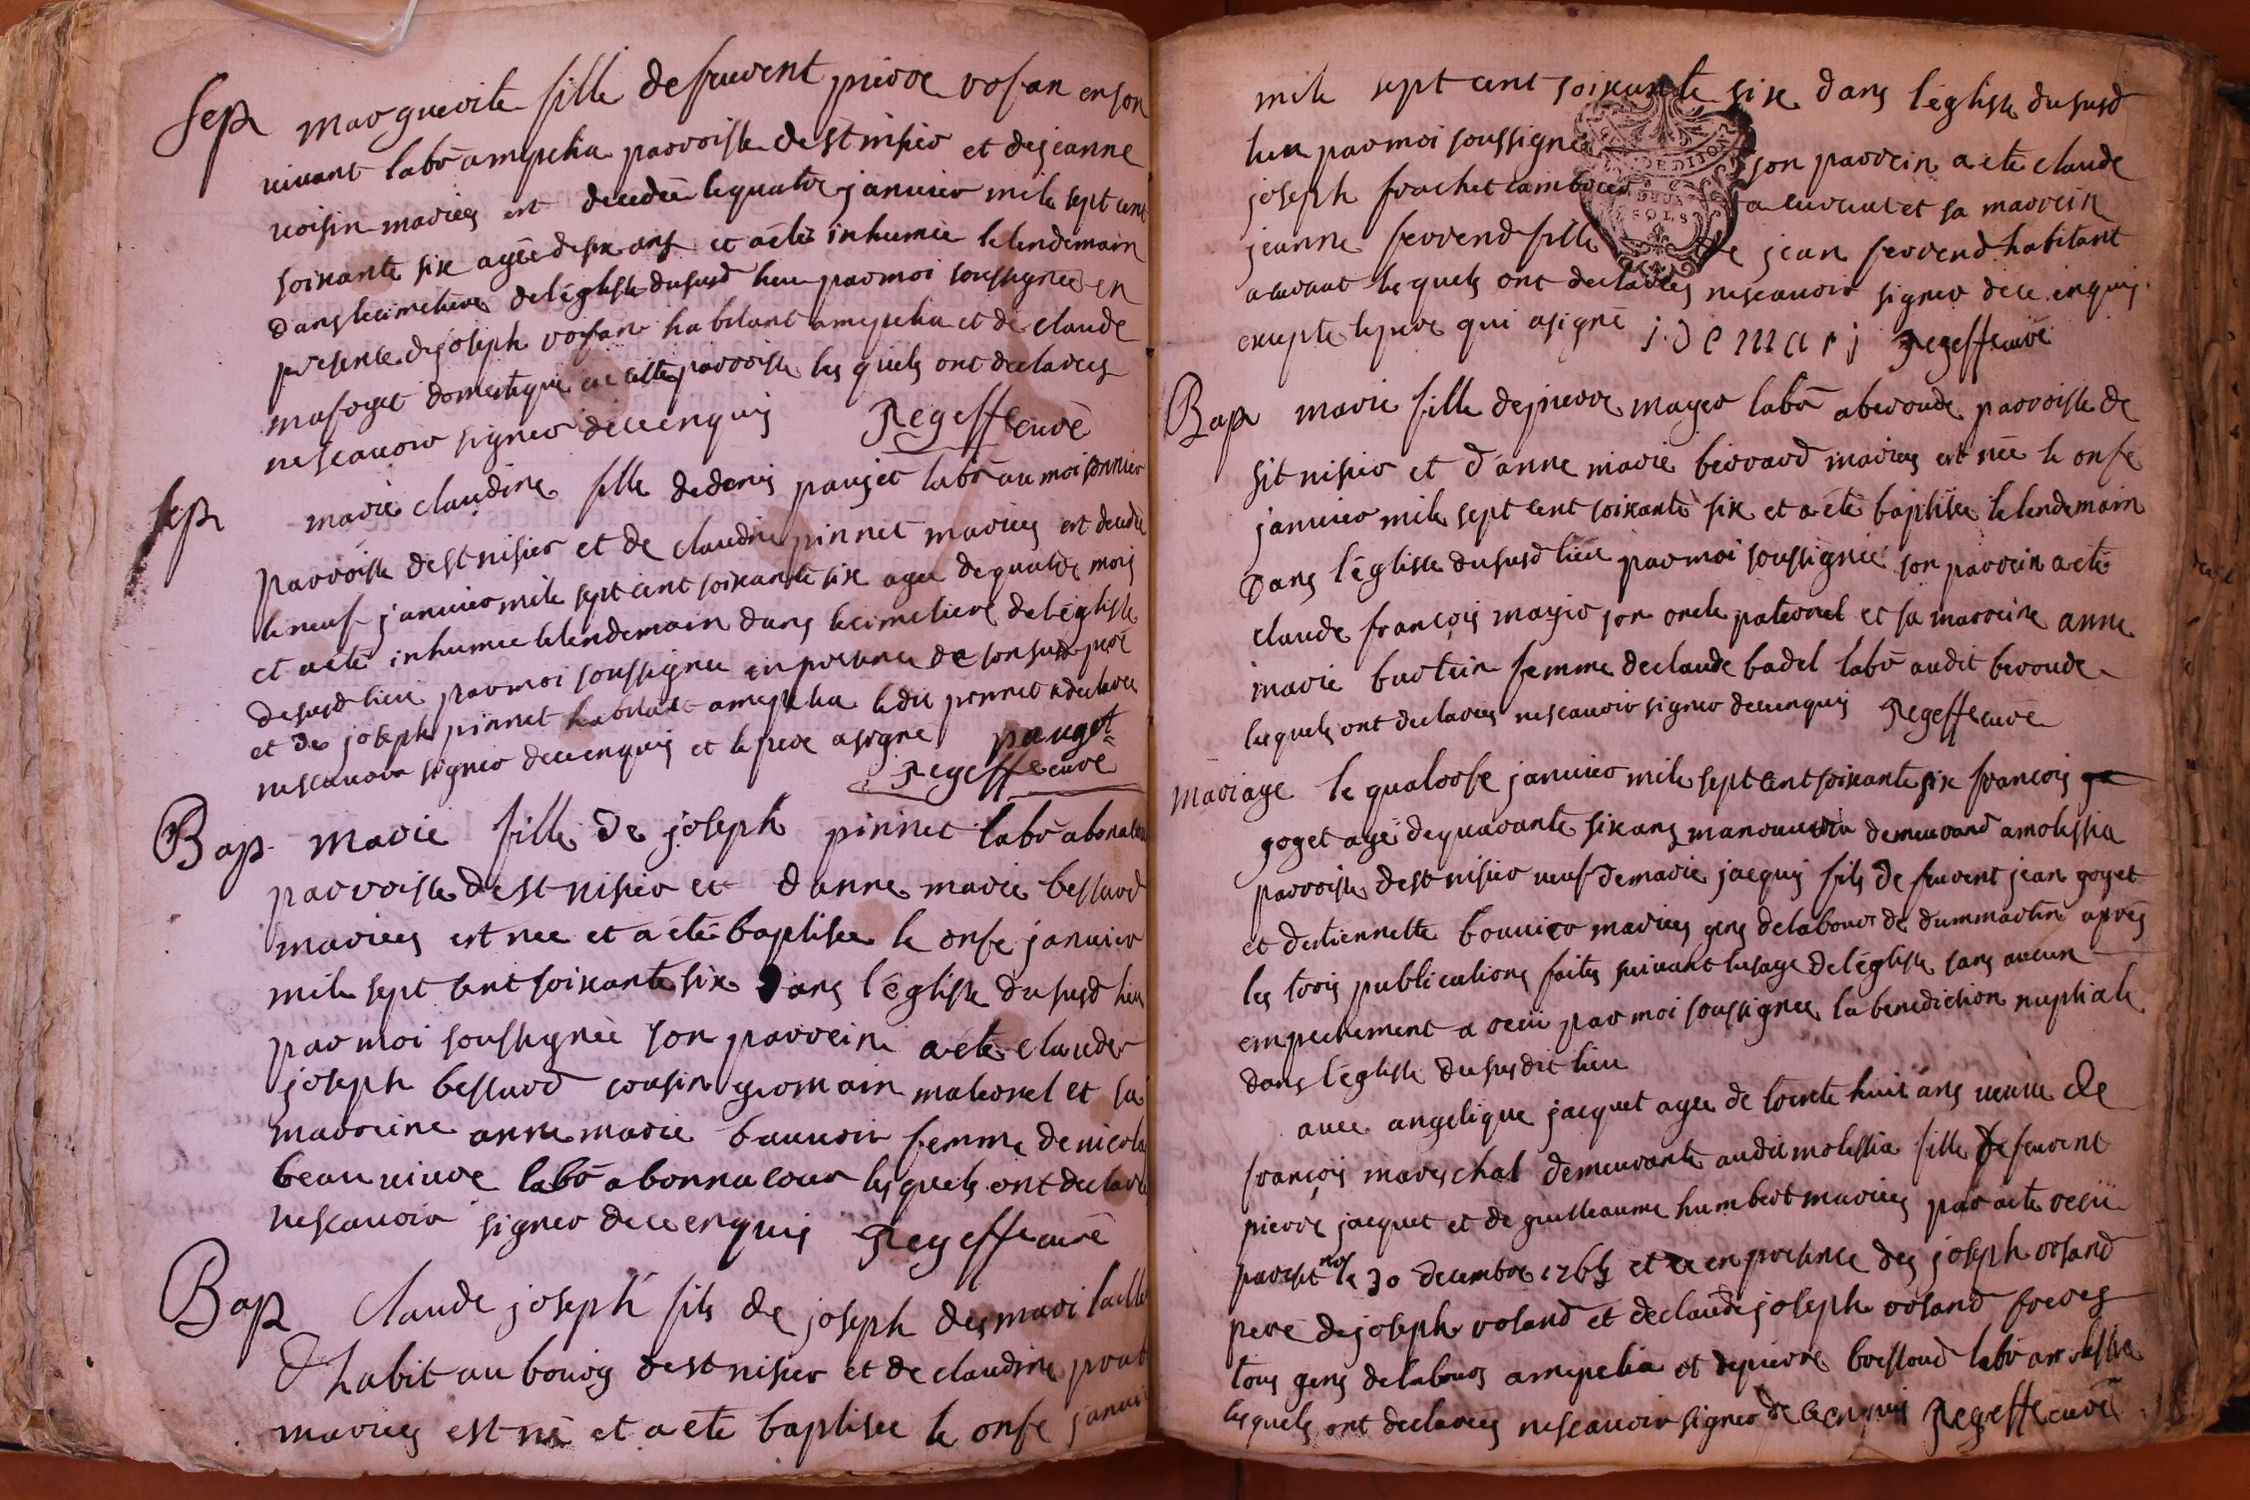 Sep marguerite fille de feuvent pierre rosan en son
vivant labr ameselia parroisse de st nisier et de jeanne
voisin maries est decedée le quatre janvier mile sept cent
soixante six agée de six ans et a été inhumée le lendemain
dans le cimetiere de l'église du susd lieu par moi soussignée en
presence de joseph rosan habitant ameselia et de claude
domestique en cette parroisse les quels ont declarees
ne scavoir signer de ce enquis Regeffe curé
Sep marie claudine fille de denis pauget labr au moisonnier
parroisse de st nisier et de claudine pinnet maries est decedée
le neuf janvier mile sept cent soixante six agee de quatre mois
et a été inhumee le lendemain dans le cimetiere de l'église
du susd lieu par moi soussignee en presence de son susd pere
et de joseph pinnet habitat ameselia le dit pinnet a declaree
ne scavoir signer de ce enquis et le pere a signé pauget
Regeffe curé
Bap marie fille de joseph pinnet labr
parroisse de st nisier et d'anne marie bessard
mariees est nee et a été baptisee le onse janvier
mile sept cent soixante six dans l'église du susd lieu
par moi soussignée son parrein a été claude
joseph bessard cousin germain maternel et sa
marreine anne marie bauvoir femme de nicola
beau vivre labr a bonna cour les quels ont declaré
ne scavoir signer de ce enquis Regeffe curé
Bap claude joseph fils de joseph des mari
habit au bourg de st nisier et de claudine
mariees est né et a eté baptisee le onse janvi
mile sept cent soixante six dans l'église du susd
lieu par moi soussigné son parrein a eté claude
joseph frachet et sa marrein
DEUX
SOLS
jeanne ferrend fille de jean ferrend habitant
les quels ont declarees ne scavoir signer de ce enquis
excepté le pere qui a signé j. demari Regeffe curé
Bap marie fille de pierre mayer labr a beroude parroisse de
st nisier et d'anne marie berrard maries est née le onse
janvier mile sept cent soixante six et a été baptisee le lendemain
dans l'église du susd lieu par moi soussignée son parrein a été
claude françois mayer son oncle paternel et sa marreine anne
marie burtein femme de claude badel labr audit beroude
les quels ont declarees ne scavoir signer de ce enquis Regeffe curé
mariage le quatorse janvier mile sept cent soixante six françois
goyet agé de quarante six ans demeurand amolissia
parroisse de st nisier veuf de marie jacquis fils de feuvent jean goyet
et d'estiennette bouvier mariees gens de labour de dummartin après
les trois publications faites suivant lusage de l'église sans aucun
empechement a receu par moi soussignée la benediction nuptiale
dans l'église du susdit lieu
avec angelique jacquet agee de trente huit ans veuve de
françois mareschal demeurante audit molissia fille de feuvent
pierre jacquet et de guilleaume humbert mariees par acte reçu
le 30 decembre 1765 et en presence de joseph rosand
pere de joseph rosand et de claude joseph rosand freres
tous gens de labour ameselia et de pierre bressoud labr
les quels ont declarees ne scavoir signer de ce enquis Regeffe curé